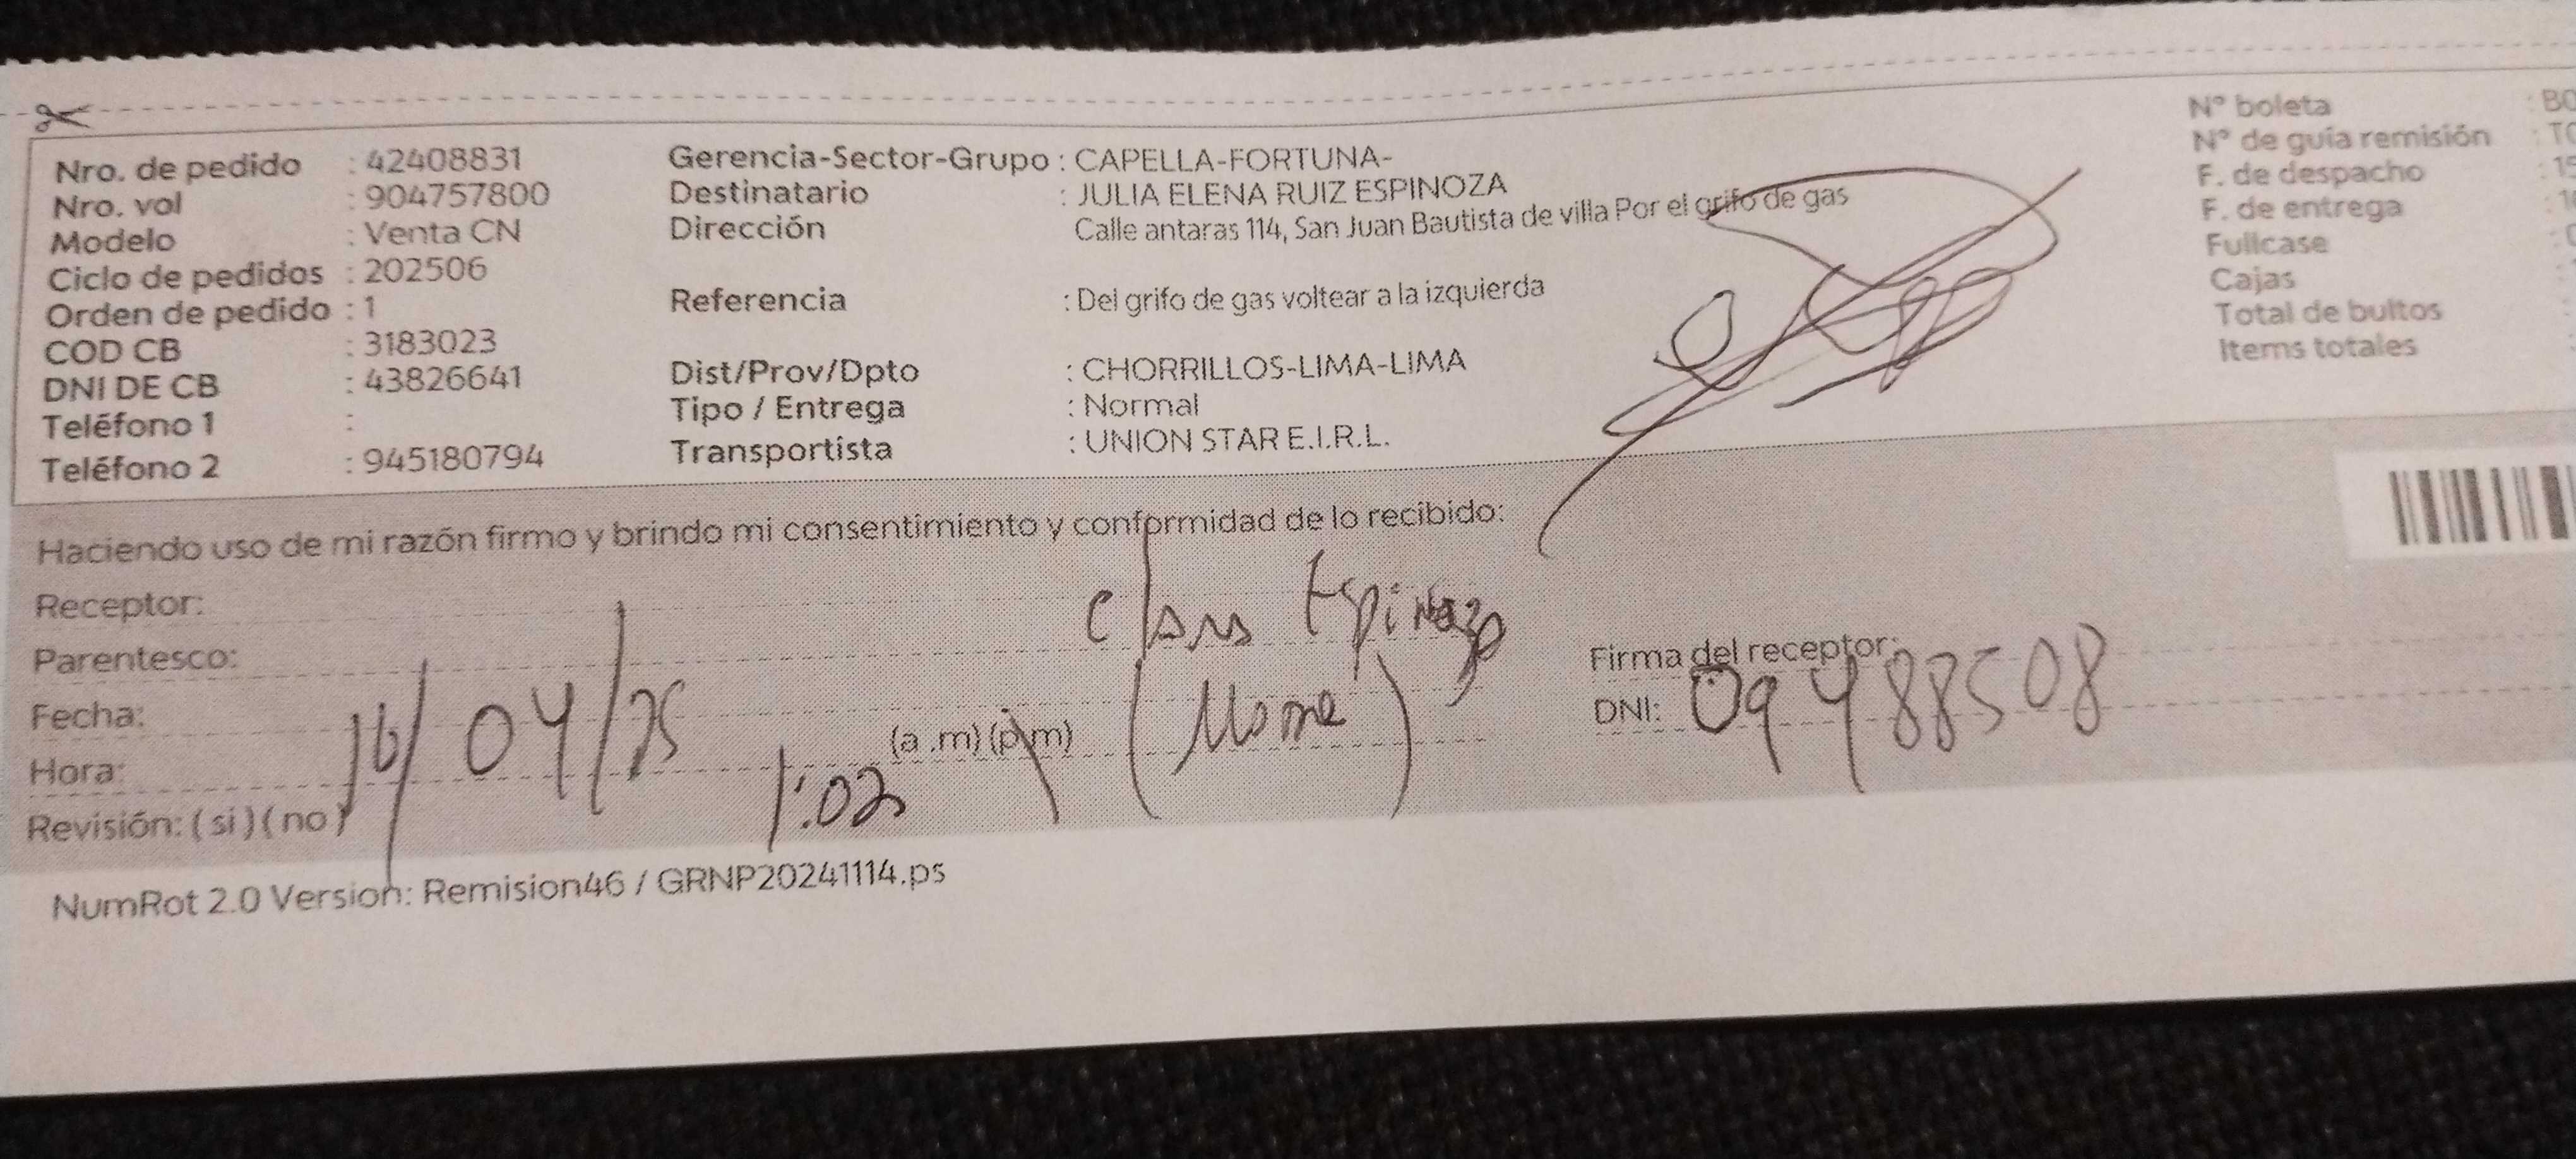 Nro. de pedido : 42408831
Nro. vol : 904757800
Modelo : Venta CN
Ciclo de pedidos : 202506
Orden de pedido : 1
COD CB : 3183023
DNI DE CB : 43826641
Teléfono 1 :
Teléfono 2 : 945180794
Gerencia-Sector-Grupo : CAPELLA-FORTUNA-
Destinatario : JULIA ELENA RUIZ ESPINOZA
Dirección Calle antaras 114, San Juan Bautista de villa Por el grifo de gas
Referencia : Del grifo de gas voltear a la izquierda
Dist/Prov/Dpto : CHORRILLOS-LIMA-LIMA
Tipo / Entrega : Normal
Transportista : UNION STAR E.I.R.L.
N° boleta : B0
N° de guía remisión
F. de despacho : 15
F. de entrega
Fullcase
Cajas :
Total de bultos
Items totales
Haciendo uso de mi razón firmo y brindo mi consentimiento y conformidad de lo recibido:
Receptor: Espinoza
Parentesco:
Fecha: 16/04/25
Hora: 1:02 (a .m) (p.m)
Revisión: ( si ) ( no )
Firma del receptor:
DNI: 09488508
NumRot 2.0 Version: Remision46 / GRNP20241114.ps